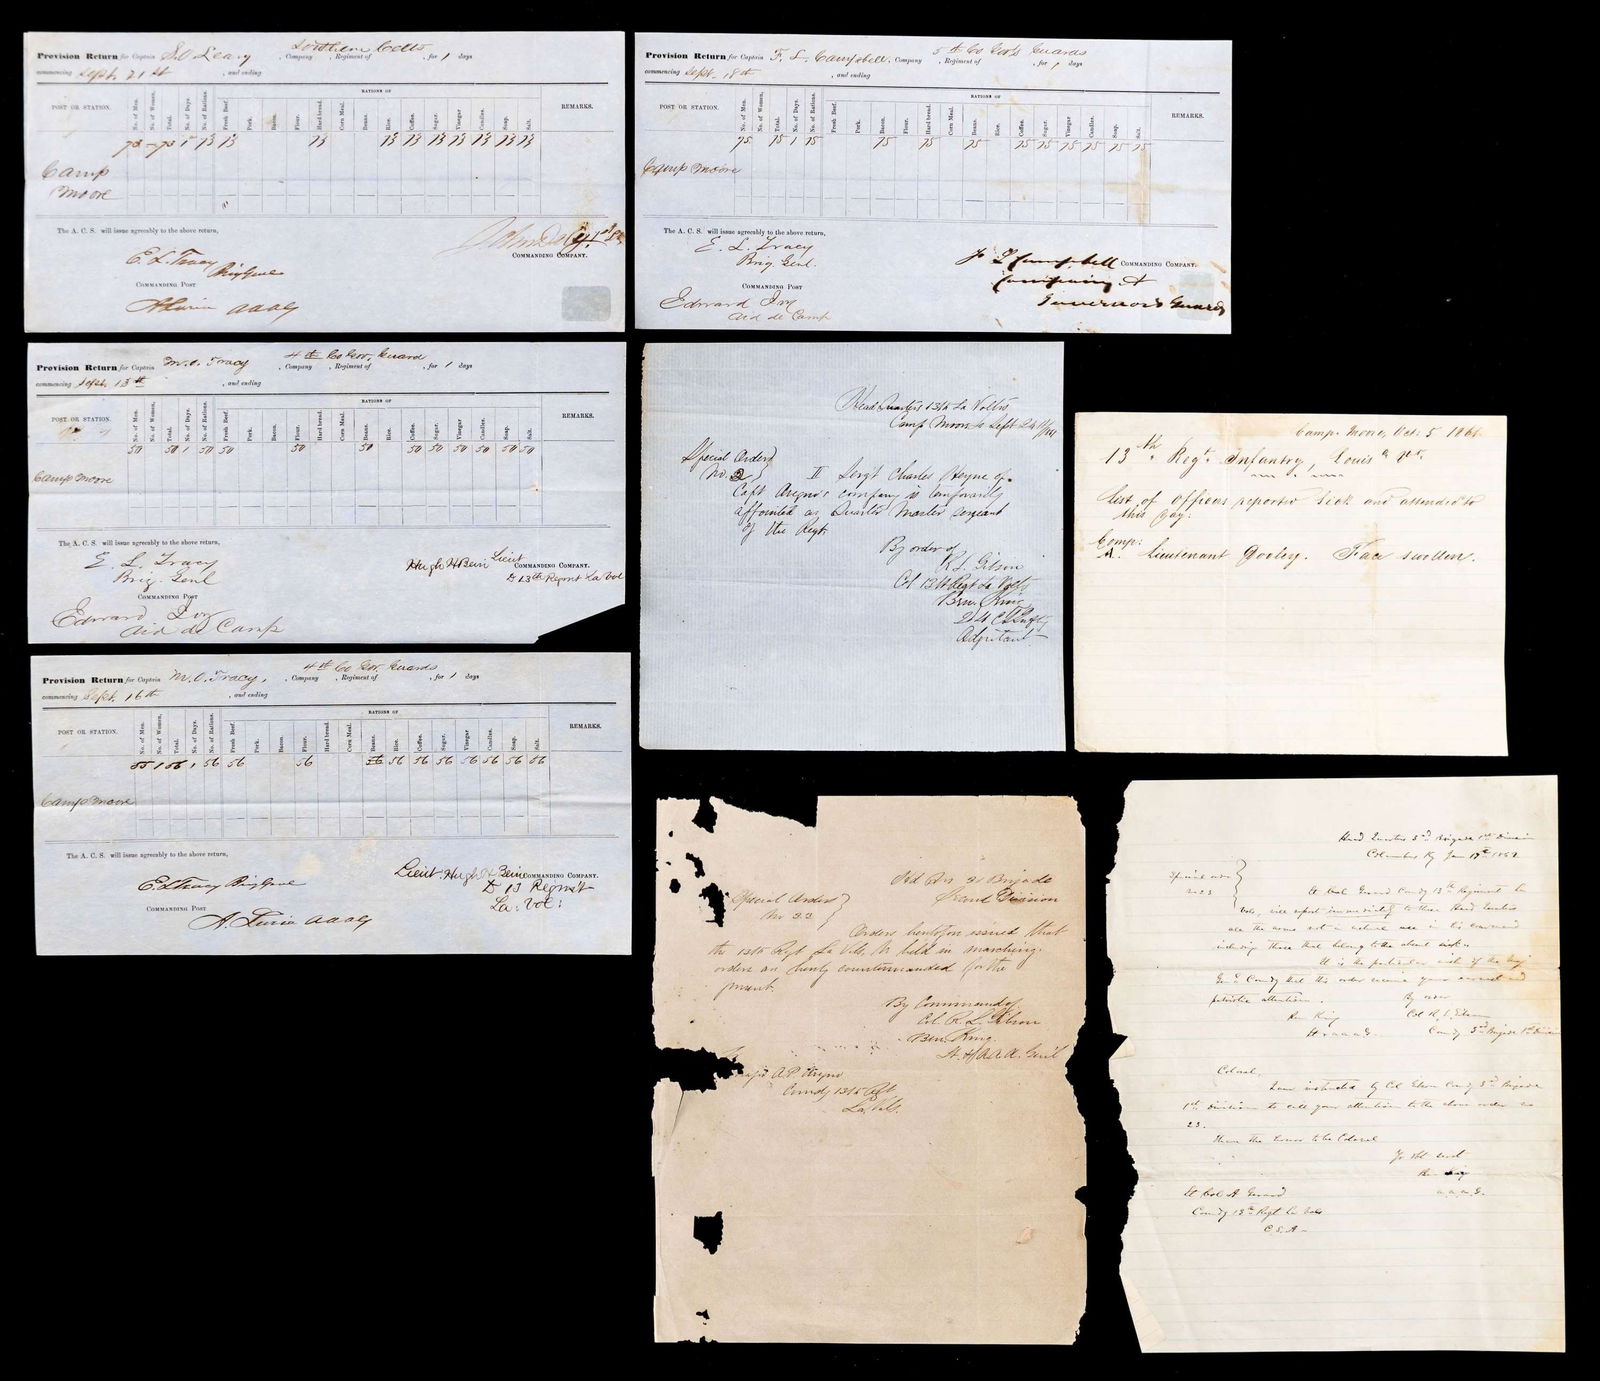 Southern Celts
Provision Return for Captain S. O. Leary , Company , Regiment of , for 1 days
commencing Sept. 21st , and ending
RATIONS OF
POST OR STATION. No. of Men. No. of Women, Total. No. of Days. No. of Rations. Fresh Beef. Pork. Bacon. Flour. Hard bread. Corn Meal. Beans. Rice. Coffee. Sugar. Vinegar Candles. Soap. Salt. REMARKS.
Camp
Moore
The A. C. S. will issue agreebly to the above return,
COMMANDING COMPANY.
E. L. Tracy
Brig Genl
COMMANDING POST
5th Co Gov's Guards
Provision Return for Captain F. L. Campbell, Company , Regiment of , for 1 days
commencing Sept. 18th , and ending
RATIONS OF
POST OR STATION. No. of Men. No. of Women, Total. No. of Days. No. of Rations. Fresh Beef. Pork. Bacon. Flour. Hard bread. Corn Meal. Beans. Rice. Coffee. Sugar. Vinegar Candles. Soap. Salt. REMARKS.
75 75 1 75 75 75 75 75 75 75 75 75 75
Camp Moore
The A. C. S. will issue agreebly to the above return,
E. L. Tracy
Brig. Genl.
F L Campbell COMMANDING COMPANY.
Company A
Governors Guards
COMMANDING POST
Edward Ivy
Aid de Camp
4th Co Gov. Guard
Provision Return for Captain M. O. Tracy , Company , Regiment of , for 1 days
commencing Sept. 13th , and ending
RATIONS OF
POST OR STATION. No. of Men. No. of Women, Total. No. of Days. No. of Rations. Fresh Beef. Pork. Bacon. Flour. Hard bread. Corn Meal. Beans. Rice. Coffee. Sugar. Vinegar Candles. Soap. Salt. REMARKS.
50 50 1 50 50 50 50 50 50 50 50 50 50
Camp Moore
The A. C. S. will issue agreebly to the above return,
E. L. Tracy
Brig. Genl
Hugh H Bein Lieut COMMANDING COMPANY.
D 13th Regmt La Vol
COMMANDING POST
Edward Ivy
Aid de Camp
4th Co Gov. Guards
Provision Return for Captain M. O. Tracy, , Company , Regiment of , for 1 days
commencing Sept. 16th , and ending
RATIONS OF
POST OR STATION. No. of Men. No. of Women, Total. No. of Days. No. of Rations. Fresh Beef. Pork. Bacon. Flour. Hard bread. Corn Meal. Beans. Rice. Coffee. Sugar. Vinegar Candles. Soap. Salt. REMARKS.
55 1 56 1 56 56 56 56 56 56 56 56 56 56 56
Camp Moore
The A. C. S. will issue agreebly to the above return,
Lieut. Hugh H Bein COMMANDING COMPANY.
D 13 Regmt
La: Vol:
E. L. Tracy Brig Genl
COMMANDING POST
Head Quarters 13th La Vol'trs
Camp Moore Sept 24
Special Orders
No. 2 } II Sergt Charles Heyne of
Capt Avegno's company is temporarily
appointed as Quarter Master Sergeant
of the Regt.
By order of
R. L. Gibson
Col 13th Regt La Volts
Ben King
Adjutant
Camp. Moore, Oct. 5 1861.
13th Regt. Infantry, Louisa
List of officers reported sick and attended to
this day.
Comp:
A. Lieutenant Dooley. Face swollen.
Hd Qrs 2d Brigade
Grand Division
Special Orders
No 22 }
Orders heretofore issued that
the 13th Regt La Vols, be held in marching
orders are hereby countermanded for the
present.
By Command of
Col. R. L. Gibson
Ben. King.
A. A. A. Genl
A. P. Avegno
Comdg 13th Regt
La Vols.
Head Quarters 3rd Brigade 1st
Columbus Ky Jan 17th 1862
Special order
No 23 } Lt Col. Gerard Comdg 13th Regiment La
Vols, will report immediately to these Head Quarters
all the arms not in actual use in his command
including those that belong to the absent sick.
It is the particular wish of the
Genl Comdg that this order receive your earnest and
patriotic attention. By order
Ben King Col R. L. Gibson
Comdg 3rd Brigade 1st
Colonel.
I am instructed by Col Gibson Comdg 3rd Brigade
1st Division to call your attention to the above order no
23.
I have the honor to be Colonel
Yr obt servt
Ben King
a.a.a.G.
Lt Col A Gerard
Comdg 13th Regt La Vols
C.S.A.